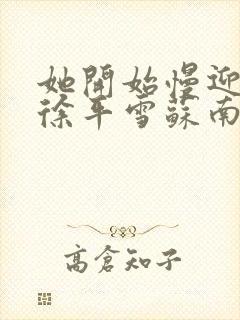 她開始慢迎
徐平雪蘇南
高倉知子